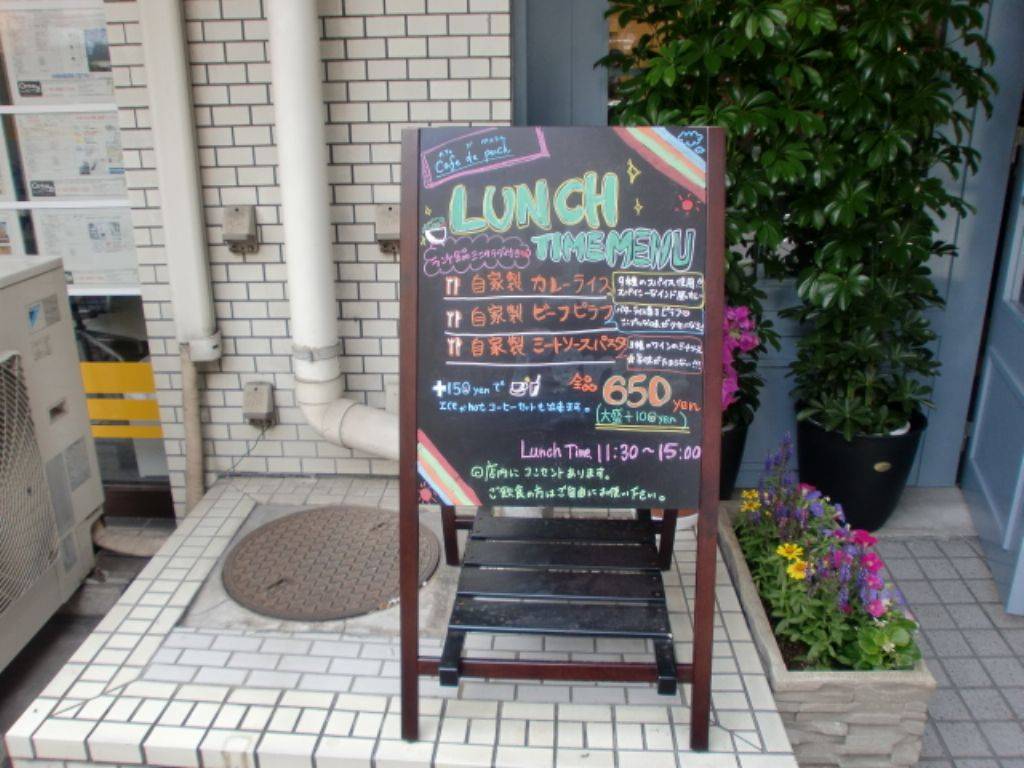 Cafe de pach
LUNCH
TIME MENU
自家製 カレーライス
9種のスパイス使用!!
スパイシーなインド風カレー
自家製 ビーフピラフ
自家製 ミートソースパスタ
+150yenで
Ice or hot コーヒーセットも出来ます。
全品 650 yen
(大盛+100yen)
Lunch Time 11:30〜15:00
店内にコンセントあります。
ご飲食の方はご自由にお使い下さい。